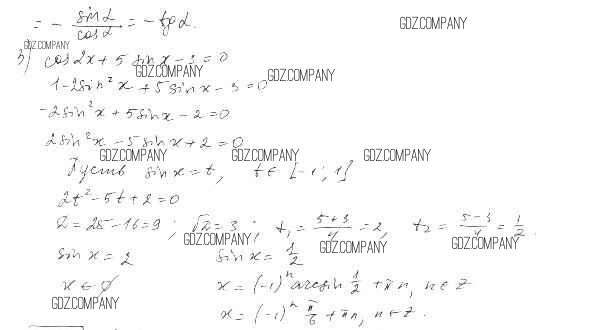 = - sinα/cosα = - tgα.
GDZ.COMPANY
GDZ.COMPANY
3) cos2x + 5 sinx - 3 = 0
GDZ.COMPANY
GDZ.COMPANY
1 - 2sin²x + 5sinx - 3 = 0
-2sin²x + 5sinx - 2 = 0
2sin²x - 5sinx + 2 = 0
GDZ.COMPANY GDZ.COMPANY GDZ.COMPANY
Пусть sinx = t, t ∈ [-1; 1]
2t² - 5t + 2 = 0
D = 25 - 16 = 9; √D = 3; t₁ = (5+3)/4 = 2, t₂ = (5-3)/4 = 1/2.
GDZ.COMPANY GDZ.COMPANY GDZ.COMPANY
sinx = 2 sinx = 1/2
x ∈ ∅ x = (-1)ⁿ arcsin 1/2 + πn, n ∈ Z
GDZ.COMPANY
x = (-1)ⁿ π/6 + πn, n ∈ Z.